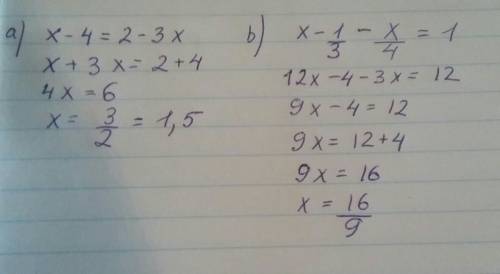 a) x - 4 = 2 - 3x
x + 3x = 2 + 4
4x = 6
x = 3/2 = 1,5
b) x - 1/3 - x/4 = 1
12x - 4 - 3x = 12
9x - 4 = 12
9x = 12 + 4
9x = 16
x = 16/9